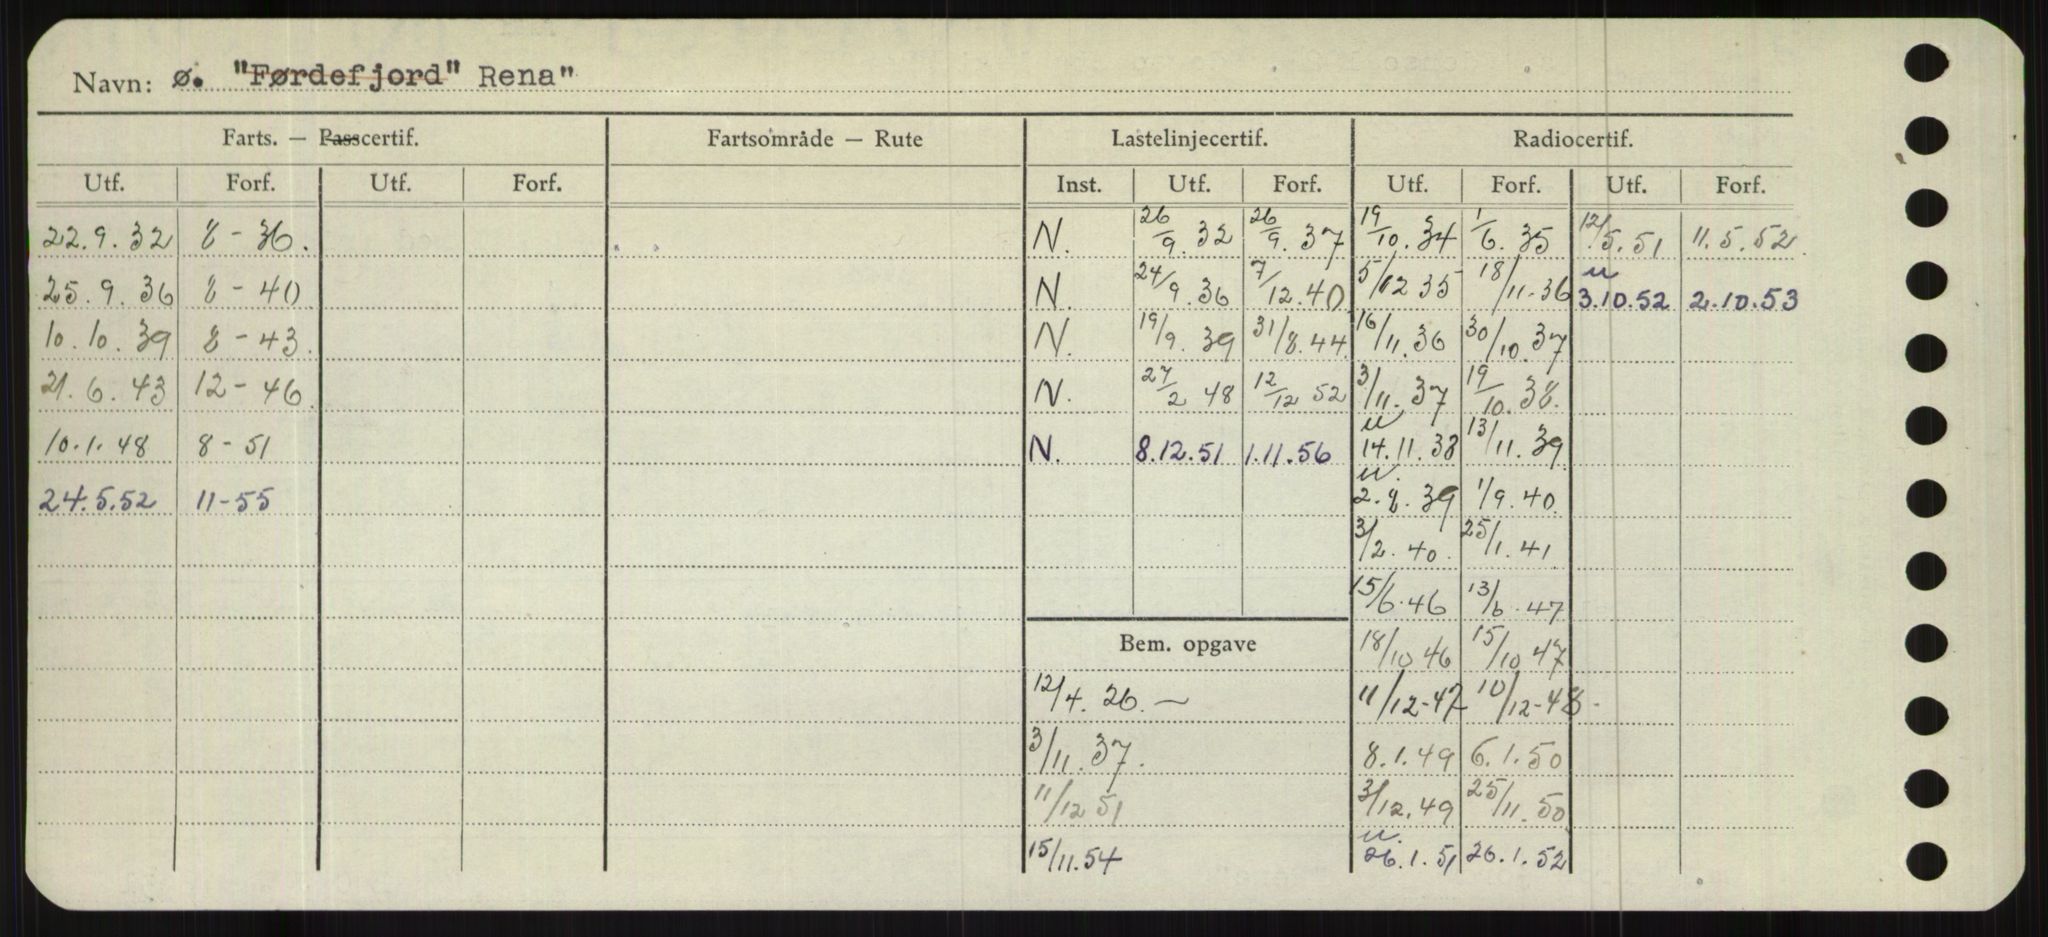 Navn: Ø. "Førdefjord" Rena"
Farts. — Passcertif. Fartsområde — Rute Lastelinjecertif. Radiocertif.
Utf. Forf. Utf. Forf. Inst. Utf. Forf. Utf. Forf. Utf. Forf.
22.9.32 8-36. N. 26/9.32 26/9.37 19/10.34 1/6.35 12/5.51 11.5.52
25.9.36 8-40 N. 24/9.36 7/12.40 5/12 35 18/11-36 u 3.10.52 2.10.53
10.10.39 8-43. N. 19/9.39 31/8.44 16/11.36 30/10.37
21.6.43 12-46 N. 27/2 48 12/12 52 3/11.37 19/10.38.
10.1.48 8-51 N. 8.12.51 1.11.56 u 14.11.38 13/11.39
24.5.52 11-55 u. 2.8.39 1/9.40
3/2.40. 25/1.41
15/6.46 13/6.47
Bem. opgave 18/10 46 15/10 47
12/4.26.— 11/12-47 10/12-48-
3/11.37. 8.1.49 6.1.50
11/12 51 3/12.49 25/11.50
15/11.54 u. 26.1.51 26.1.52